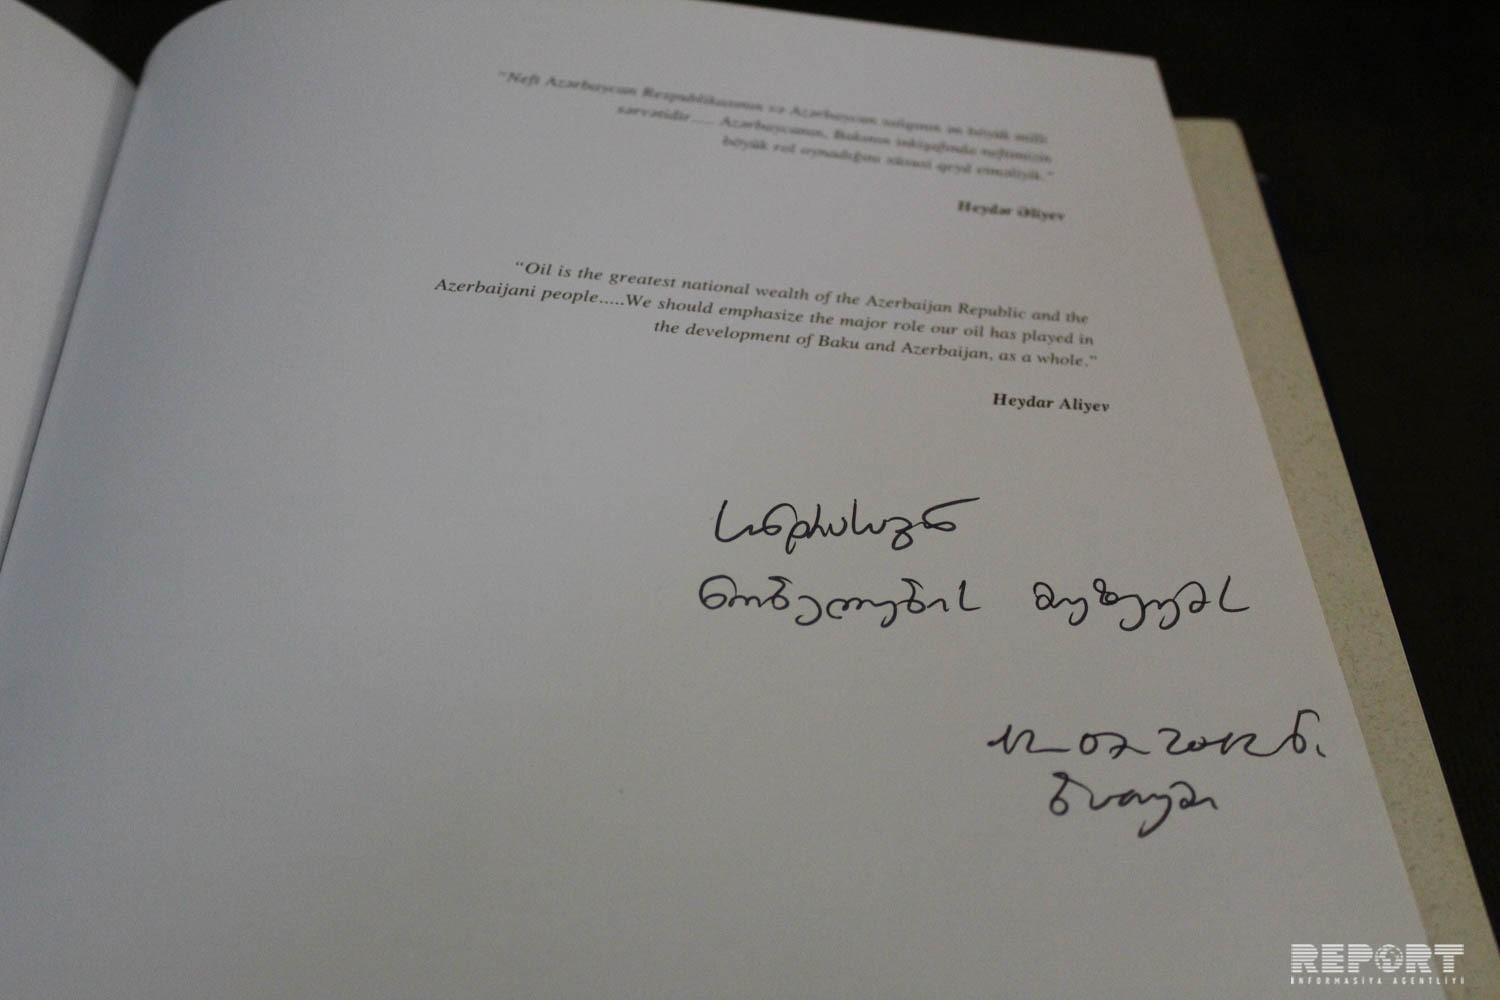 “Neft Azərbaycan Respublikasının və Azərbaycan xalqının ən böyük milli
sərvətidir..... Azərbaycanın, Bakının inkişafında neftimizin
böyük rol oynadığını xüsusi qeyd etməliyik.”
Heydər Əliyev
“Oil is the greatest national wealth of the Azerbaijan Republic and the
Azerbaijani people.....We should emphasize the major role our oil has played in
the development of Baku and Azerbaijan, as a whole.”
Heydar Aliyev
ნობელების მუზეუმს
ბათუმი
REPORT
İNFORMASİYA AGENTLİYİ